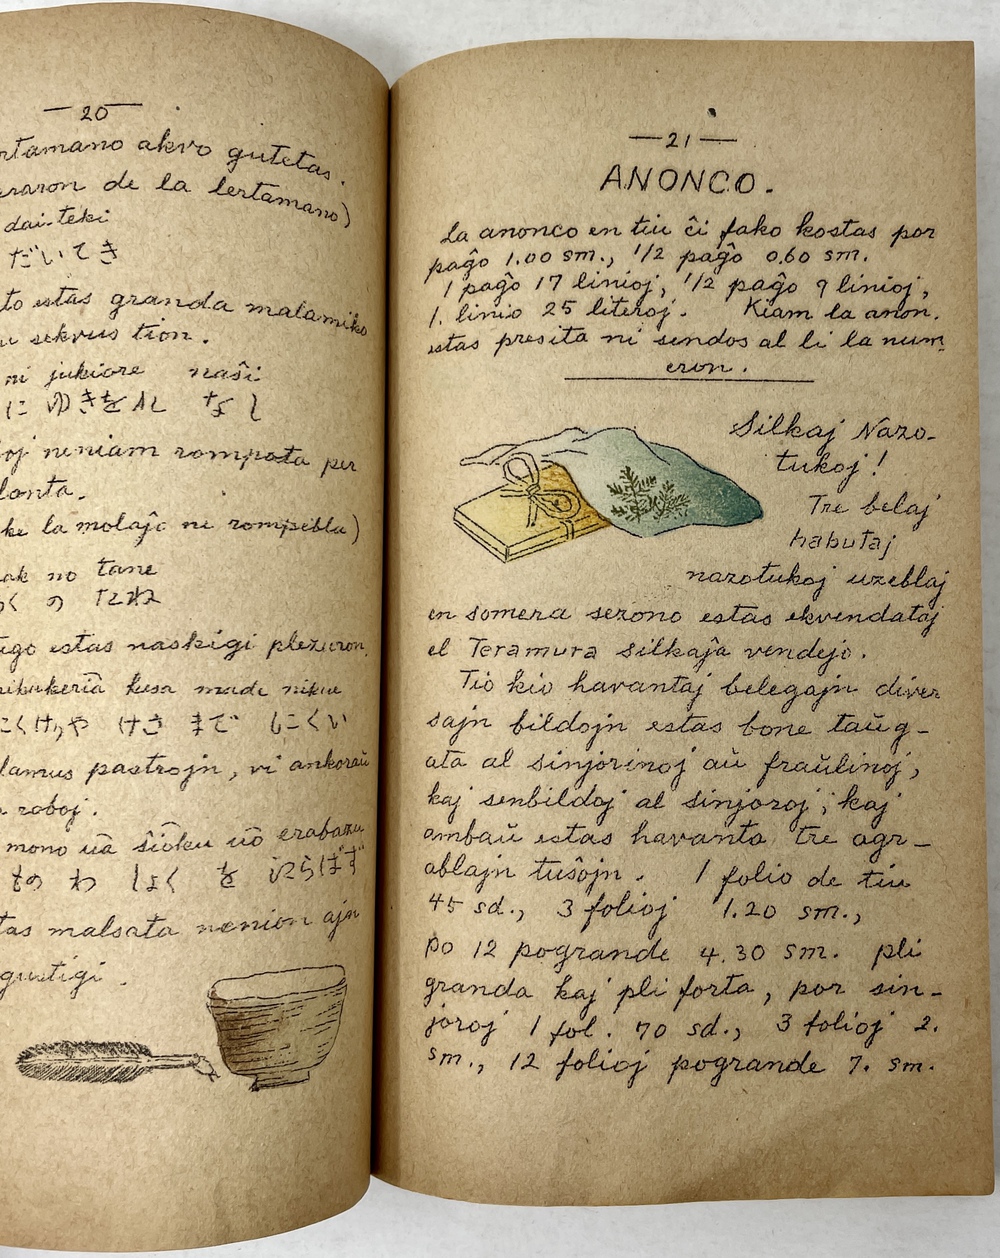 —20—
akvo gutetas.
de la lertamano)
dai-teki
だいてき
estas granda malamiko
sekvus tion.
ni jukiore naŝi
に ゆきをれ なし
neniam rompata per
ke la molaĵo ne rompebla)
no tane
の たね
estas naskigi plezuron.
kesa made nikui
けさ まで にくい
pastrojn, vi ankoraŭ
roboj.
mono ŭa ŝiōku ŭō erabazu
もの わ しよく を ゑらばず
malsata nenion ajn
gustigi.
—21—
ANONCO.
La anonco en tiu ĉi fako kostas por
paĝo 1.00 sm., 1/2 paĝo 0.60 sm.
1 paĝo 17 linioj, 1/2 paĝo 9 linioj,
1. linio 25 literoj. Kiam la anon.
estas presita ni sendos al li la num
eron.
Silkaj Nazo-
tukoj!
Tre belaj
habutaj
nazotukoj uzeblaj
en somera sezono estas ekvendataj
el Teramura silkaĵa vendejo.
Tio kio havantaj belegajn diver
sajn bildojn estas bone taŭg-
ata al sinjorinoj aŭ fraŭlinoj,
kaj senbildoj al sinjoroj; kaj
ambaŭ estas havanta tre agr-
ablajn tuŝojn. 1 folio de tiu
45 sd., 3 folioj 1.20 sm.,
po 12 pogrande 4.30 sm. pli
granda kaj pli forta, por sin-
joroj 1 fol. 70 sd., 3 folioj 2.
sm., 12 folioj pogrande 7. sm.